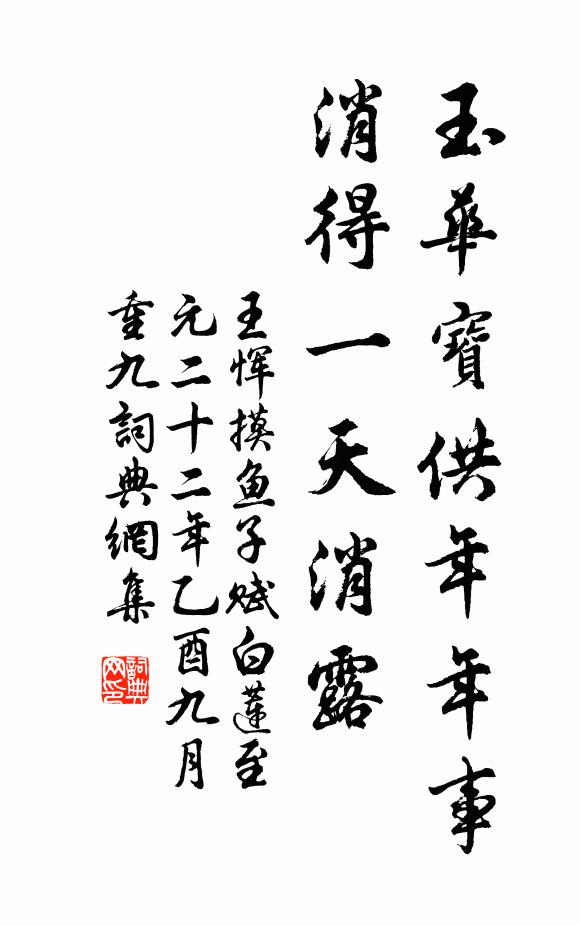 玉華寶供年年事
消得一天消露
王恽摸鱼子赋白蓮至
元二十二年乙酉九月
重九詞典網集
詞典网印